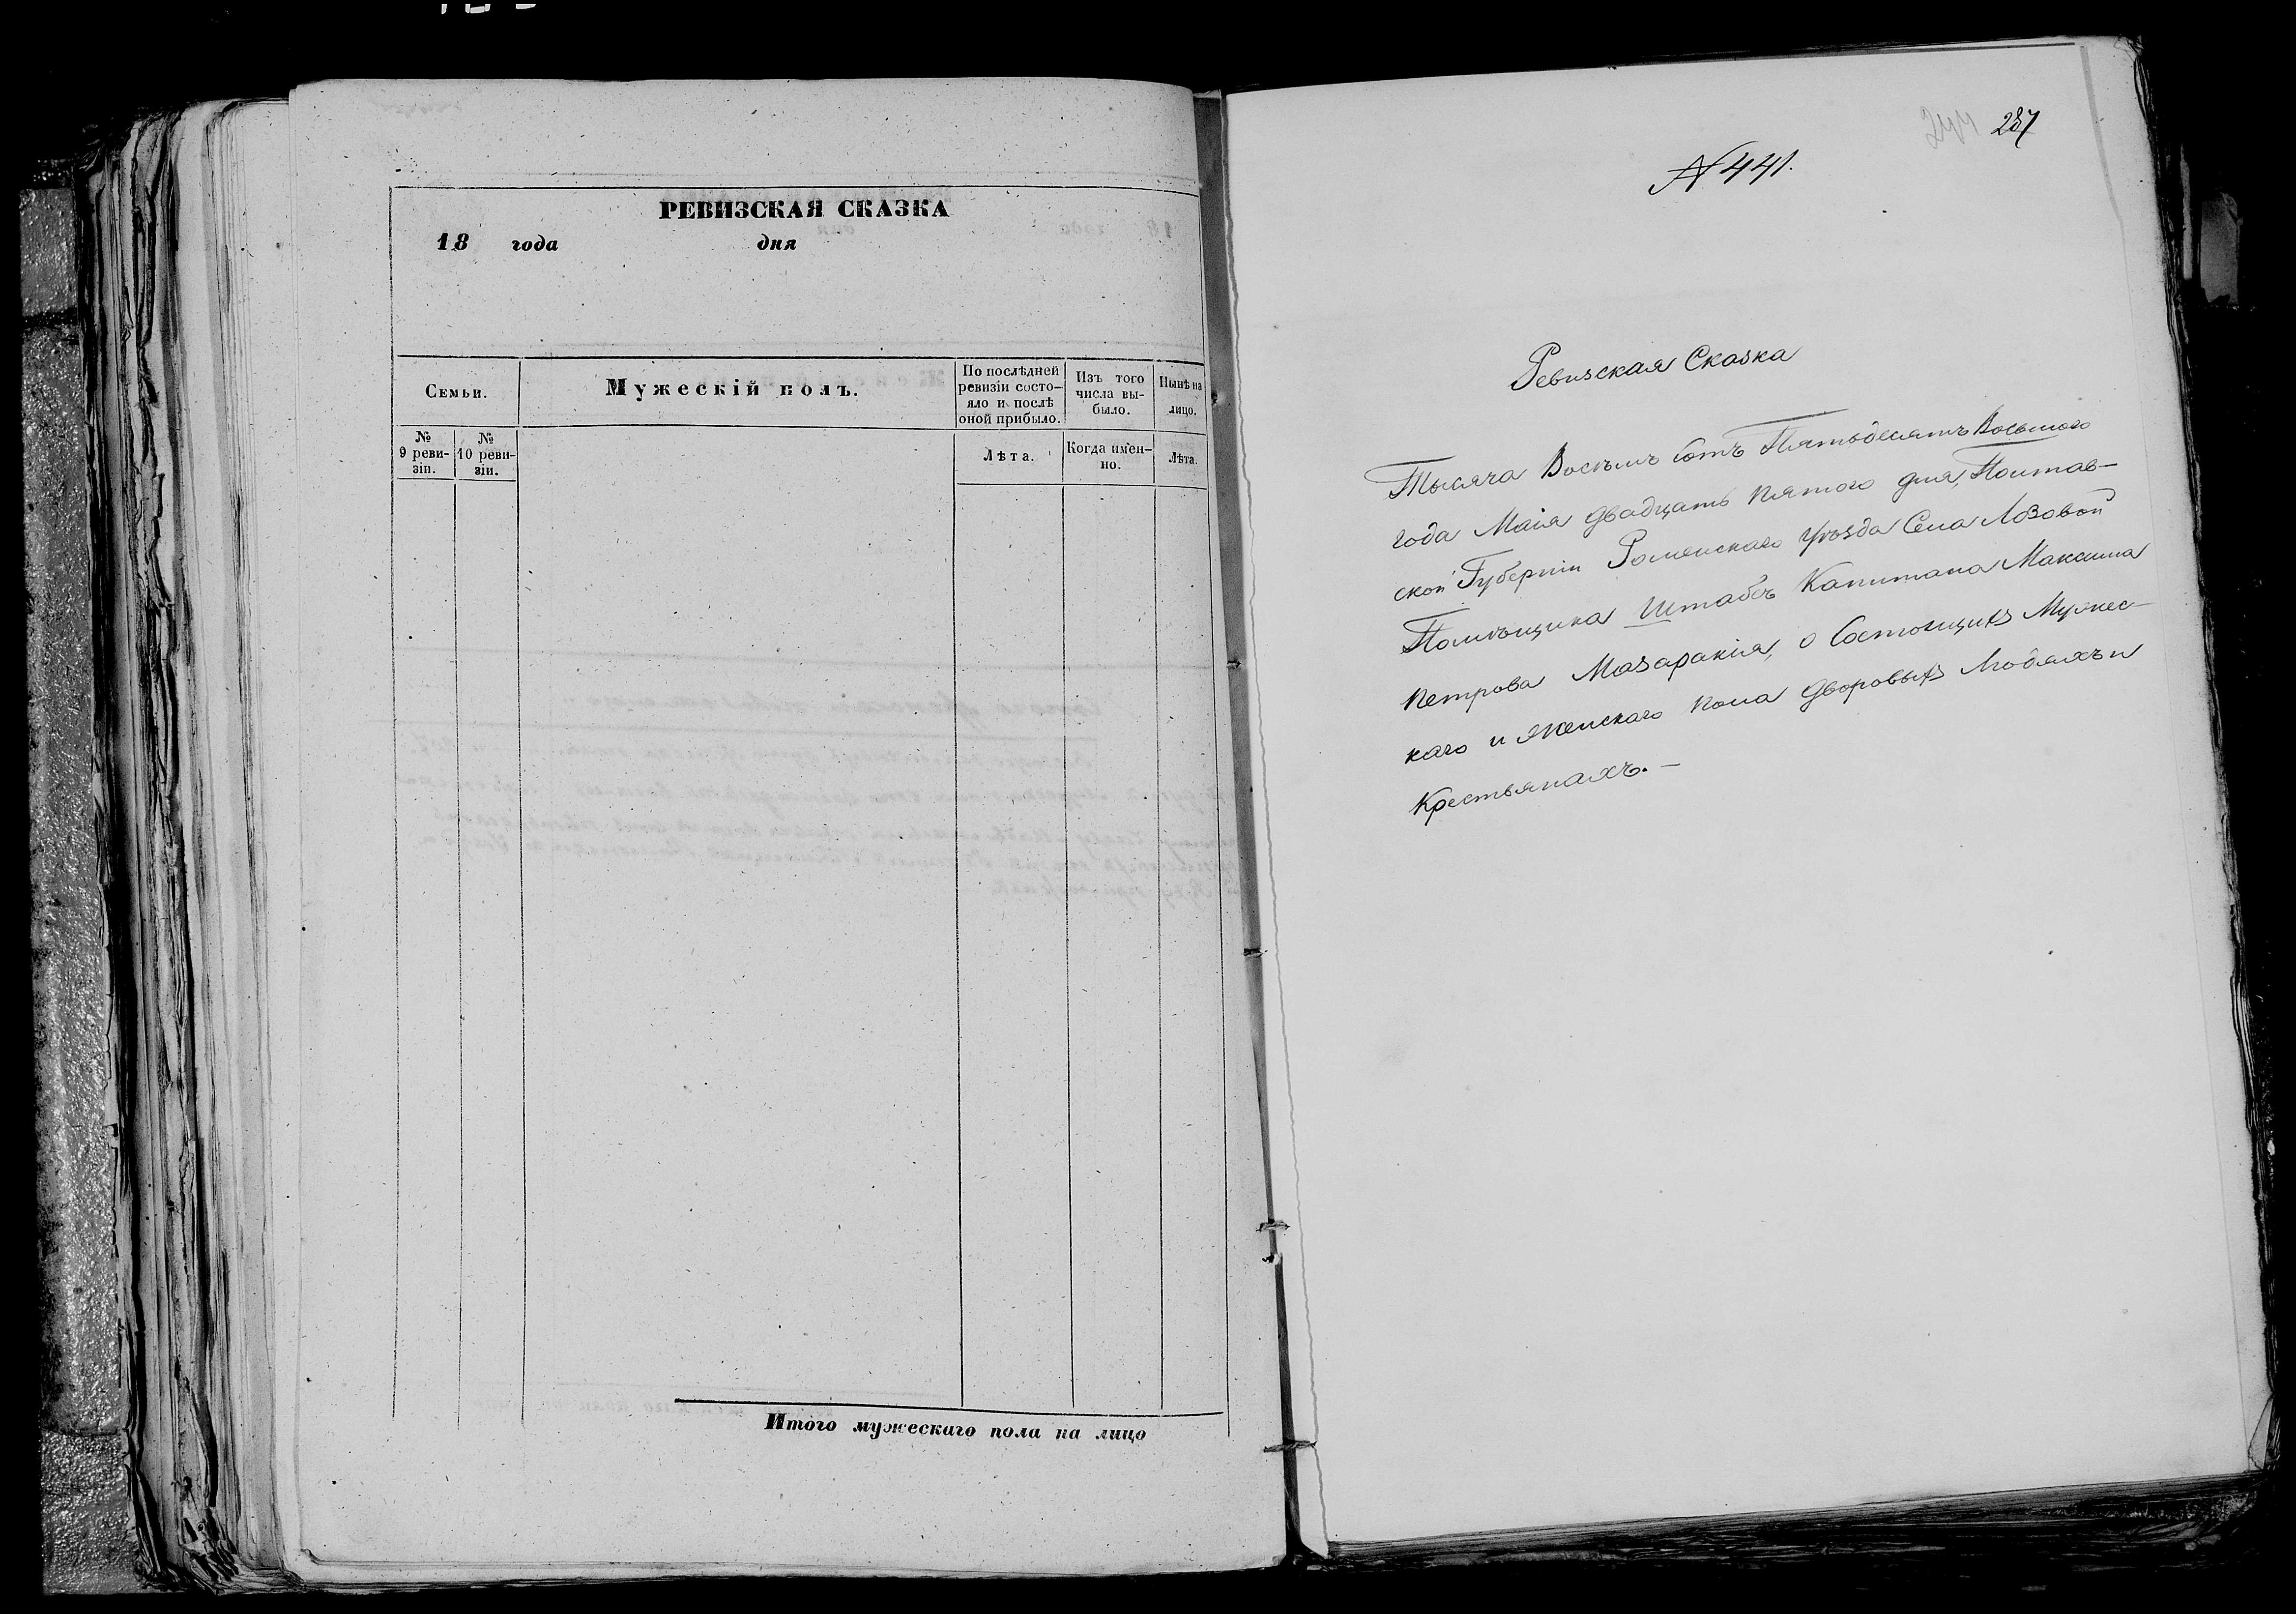 РЕВИЗСКАЯ СКАЗКА
18 года дня
Семьи.
Мужескій полъ.
По послѣдней
ревизіи состо-
яло и послѣ
оной прибыло.
Изъ того
числа вы-
было.
Нынѣ на
лицо.
№
9 реви-
зіи.
№
10 реви-
зіи.
Лѣта.
Когда имен-
но.
Лѣта.
Итого мужескаго пола на лицо
287
N 441.
Ревизская Сказка
Тысяча Восѣмъ Сотъ Пятьдесятъ Восьмого
года Маія двадцать пятого дня, Полтав-
ской Губерніи Роменскаго Уѣзда Села Лозовой
Помѣщика Штабсъ Капитана Максима
Петрова Мазаракія, о Состоящихъ Мужес-
каго и женскаго пола дворовыхъ Людяхъ и
Крестьянахъ.—